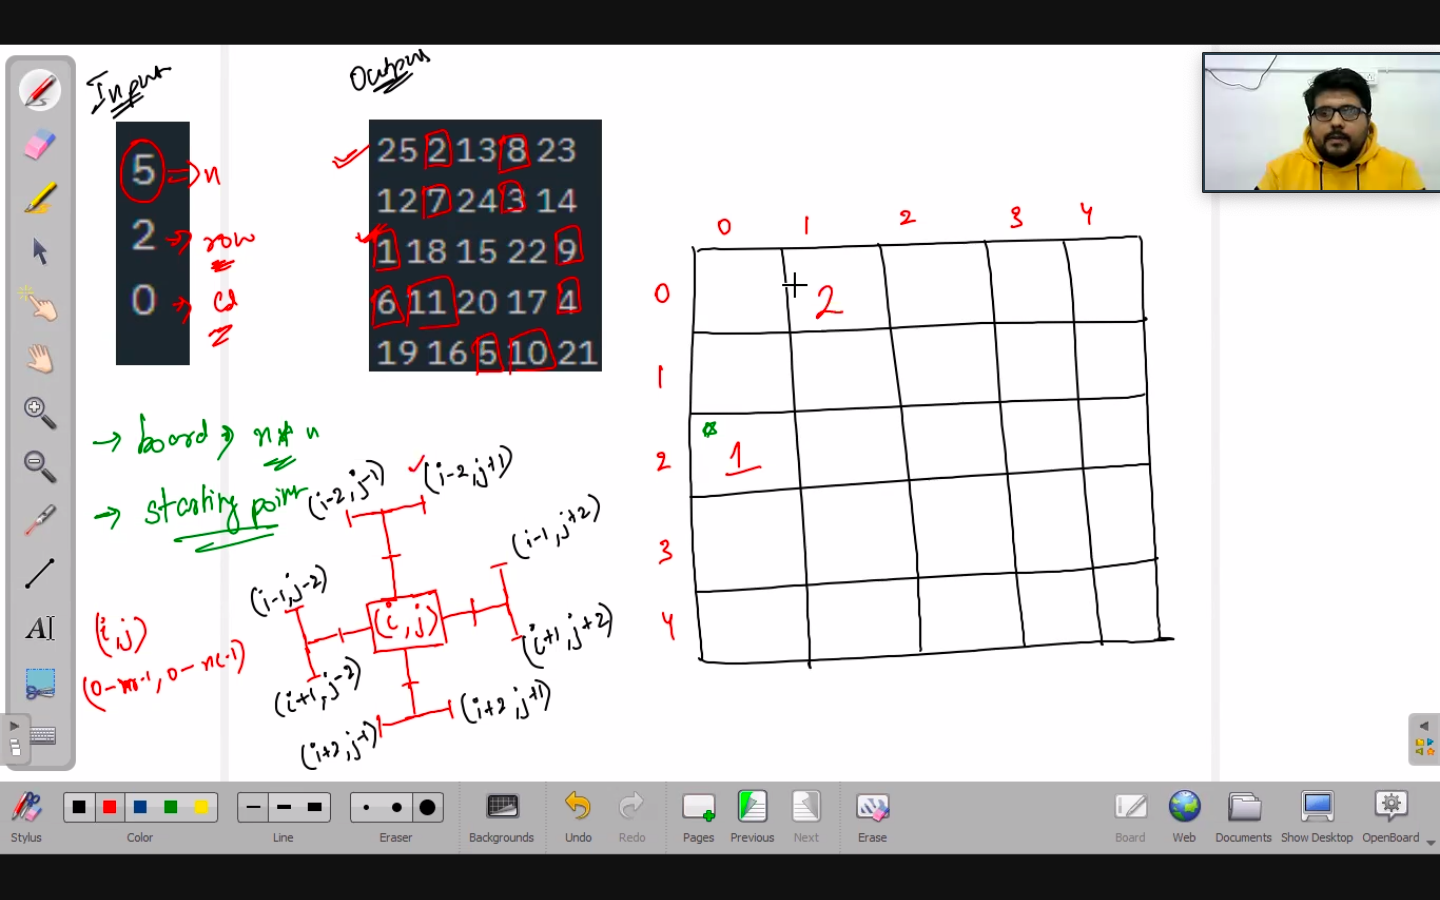 Input
Output
5 => n
2 → row
0 → Col
25 2 13 8 23
12 7 24 3 14
1 18 15 22 9
6 11 20 17 4
19 16 5 10 21
→ board → n * n
→ starting point
(i-2, j-1)
(i-2, j+1)
(i-1, j+2)
(i-1, j-2)
(i, j)
(i+1, j+2)
(i+1, j-2)
(i+2, j+1)
(i+2, j-1)
(i, j)
(0-n-1, 0-n-1)
0 1 2 3 4
0 2
1
2 1
3
4
AI
Stylus
Color
Line
Eraser
Backgrounds
Undo
Redo
Pages
Previous
Next
Erase
Board
Web
Documents
Show Desktop
OpenBoard